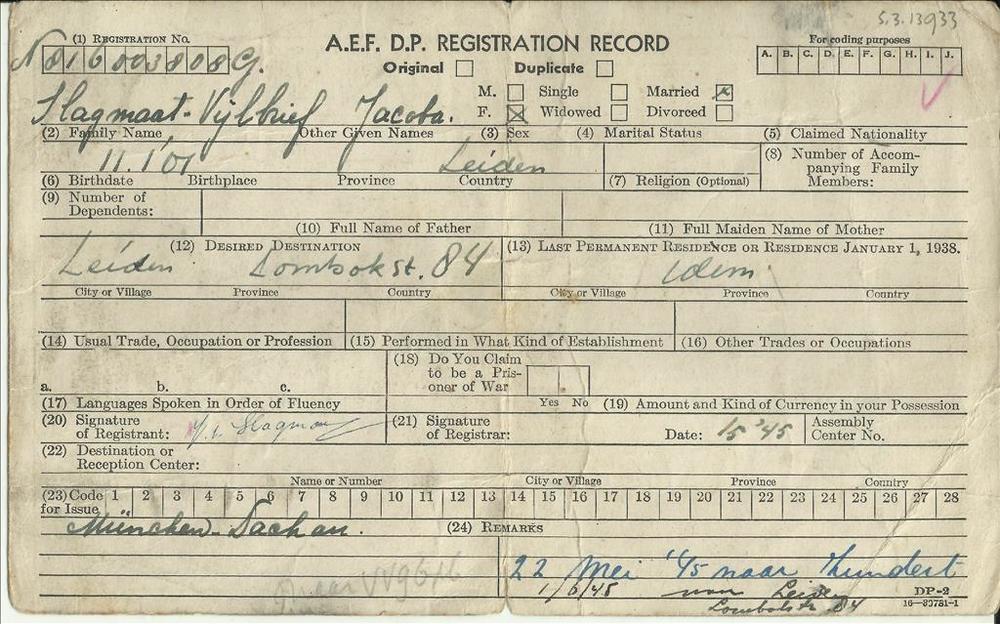 S.3.13933
(1) REGISTRATION NO.
A.E.F. D.P. REGISTRATION RECORD
For coding purposes
A. B. C. D. E. F. G. H. I. J.
Original Duplicate
M. Single Married
F. Widowed Divorced
Slagmaat-Vijlbrief Jacoba.
(2) Family Name Other Given Names (3) Sex (4) Marital Status (5) Claimed Nationality
11.1'01 Leiden
(8) Number of Accompanying Family Members:
(6) Birthdate Birthplace Province Country (7) Religion (Optional)
(9) Number of Dependents:
(10) Full Name of Father (11) Full Maiden Name of Mother
(12) DESIRED DESTINATION (13) LAST PERMANENT RESIDENCE OR RESIDENCE JANUARY 1, 1938.
Leiden Lombokst. 84 idem
City or Village Province Country City or Village Province Country
(14) Usual Trade, Occupation or Profession (15) Performed in What Kind of Establishment (16) Other Trades or Occupations
(18) Do You Claim to be a Prisoner of War
a. b. c. Yes No
(17) Languages Spoken in Order of Fluency (19) Amount and Kind of Currency in your Possession
(20) Signature of Registrant: (21) Signature of Registrar: Date: 15 '45 Assembly Center No.
(22) Destination or Reception Center:
Name or Number City or Village Province Country
(23) Code for Issue 1 2 3 4 5 6 7 8 9 10 11 12 13 14 15 16 17 18 19 20 21 22 23 24 25 26 27 28
München-Dachau. (24) REMARKS
22 Mei '45 naar
1/6/45 naar Leiden DP-2
Lombokstr. 84 16—80781-1